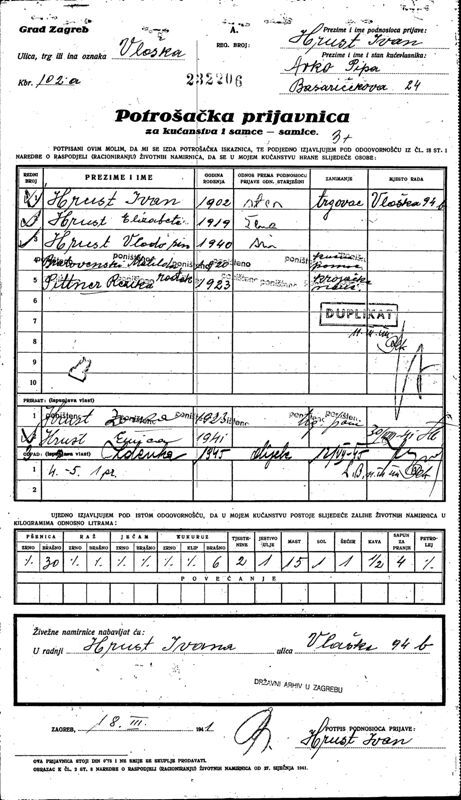 Grad Zagreb
A.
Prezime i ime podnosioca prijave:
Hrust Ivan
Ulica, trg ili ina oznaka Vlaška
REG. BROJ:
Prezime i ime i stan kućevlasnika:
Arko Pipa
Kbr. 102-a
232206
Basaričekova 24
Potrošačka prijavnica
za kućanstva i samce — samice.
3+
POTPISANI OVIM MOLIM, DA MI SE IZDA POTROŠAČKA ISKAZNICA, TE PODJEDNO IZJAVLJUJEM POD ODGOVORNOŠĆU IZ ČL. 18 ST. 1
NAREDBE O RASPODJELI (RACIONIRANJU) ŽIVOTNIH NAMIRNICA, DA SE U MOJEM KUĆANSTVU HRANE SLIJEDEĆE OSOBE:
REDNI BROJ PREZIME I IME GODINA ROĐENJA ODNOS PREMA PODNOSIOCU PRIJAVE ODN. STARJEŠINI ZANIMANJE MJESTO RADA
1 Hrust Ivan 1902 trgovac Vlaška 94 b
2 Hrust Elizabeta 1919 žena
3 Hrust Vlado 1940 sin
4 Matilda poništeno
5 Pittner 1923 poništeno
6
DUPLIKAT
7
8
9
10
PRIRAST: (ispunjava vlast)
1 Hrust 1923 poništeno
Hrust 1941
ODPAD: (ispunjava vlast) Zdenka 1945 dijete
1 4.-5. 1 pr.
2
UJEDNO IZJAVLJUJEM POD ISTOM ODGOVORNOŠĆU, DA U MOJEM KUĆANSTVU POSTOJE SLIJEDEĆE ZALIHE ŽIVOTNIH NAMIRNICA U
KILOGRAMIMA ODNOSNO LITRAMA:
PŠENICA RAŽ JEČAM KUKURUZ TJESTENINE JESTIVO ULJE MAST SOL ŠEĆER KAVA SAPUN ZA PRANJE PETROLEJ
ZRNO BRAŠNO ZRNO BRAŠNO ZRNO BRAŠNO ZRNO KLIP BRAŠNO
% 30 % % % % % % 6 2 1 15 1 1 1/2 4 %
POVEĆANJE
Živežne namirnice nabavljat ću:
U radnji Hrust Ivana ulica Vlaška 94 b
DRŽAVNI ARHIV U ZAGREBU
ZAGREB, 18. III. 1941
POTPIS PODNOSIOCA PRIJAVE:
Hrust Ivan
OVA PRIJAVNICA STOJI DIN 0'75 I NE SMIJE SE SKUPLJE PRODAVATI.
OBRAZAC K ČL. 3 ST. 2 NAREDBE O RASPODJELI (RACIONIRANJU) ŽIVOTNIH NAMIRNICA OD 27. SIJEČNJA 1941.